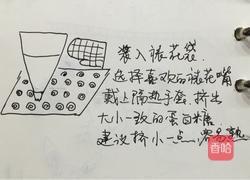 装入裱花袋.
选择喜欢的裱花嘴
戴上隔热手套.挤出
大小一致的蛋白糖.
建议挤小一点
香哈